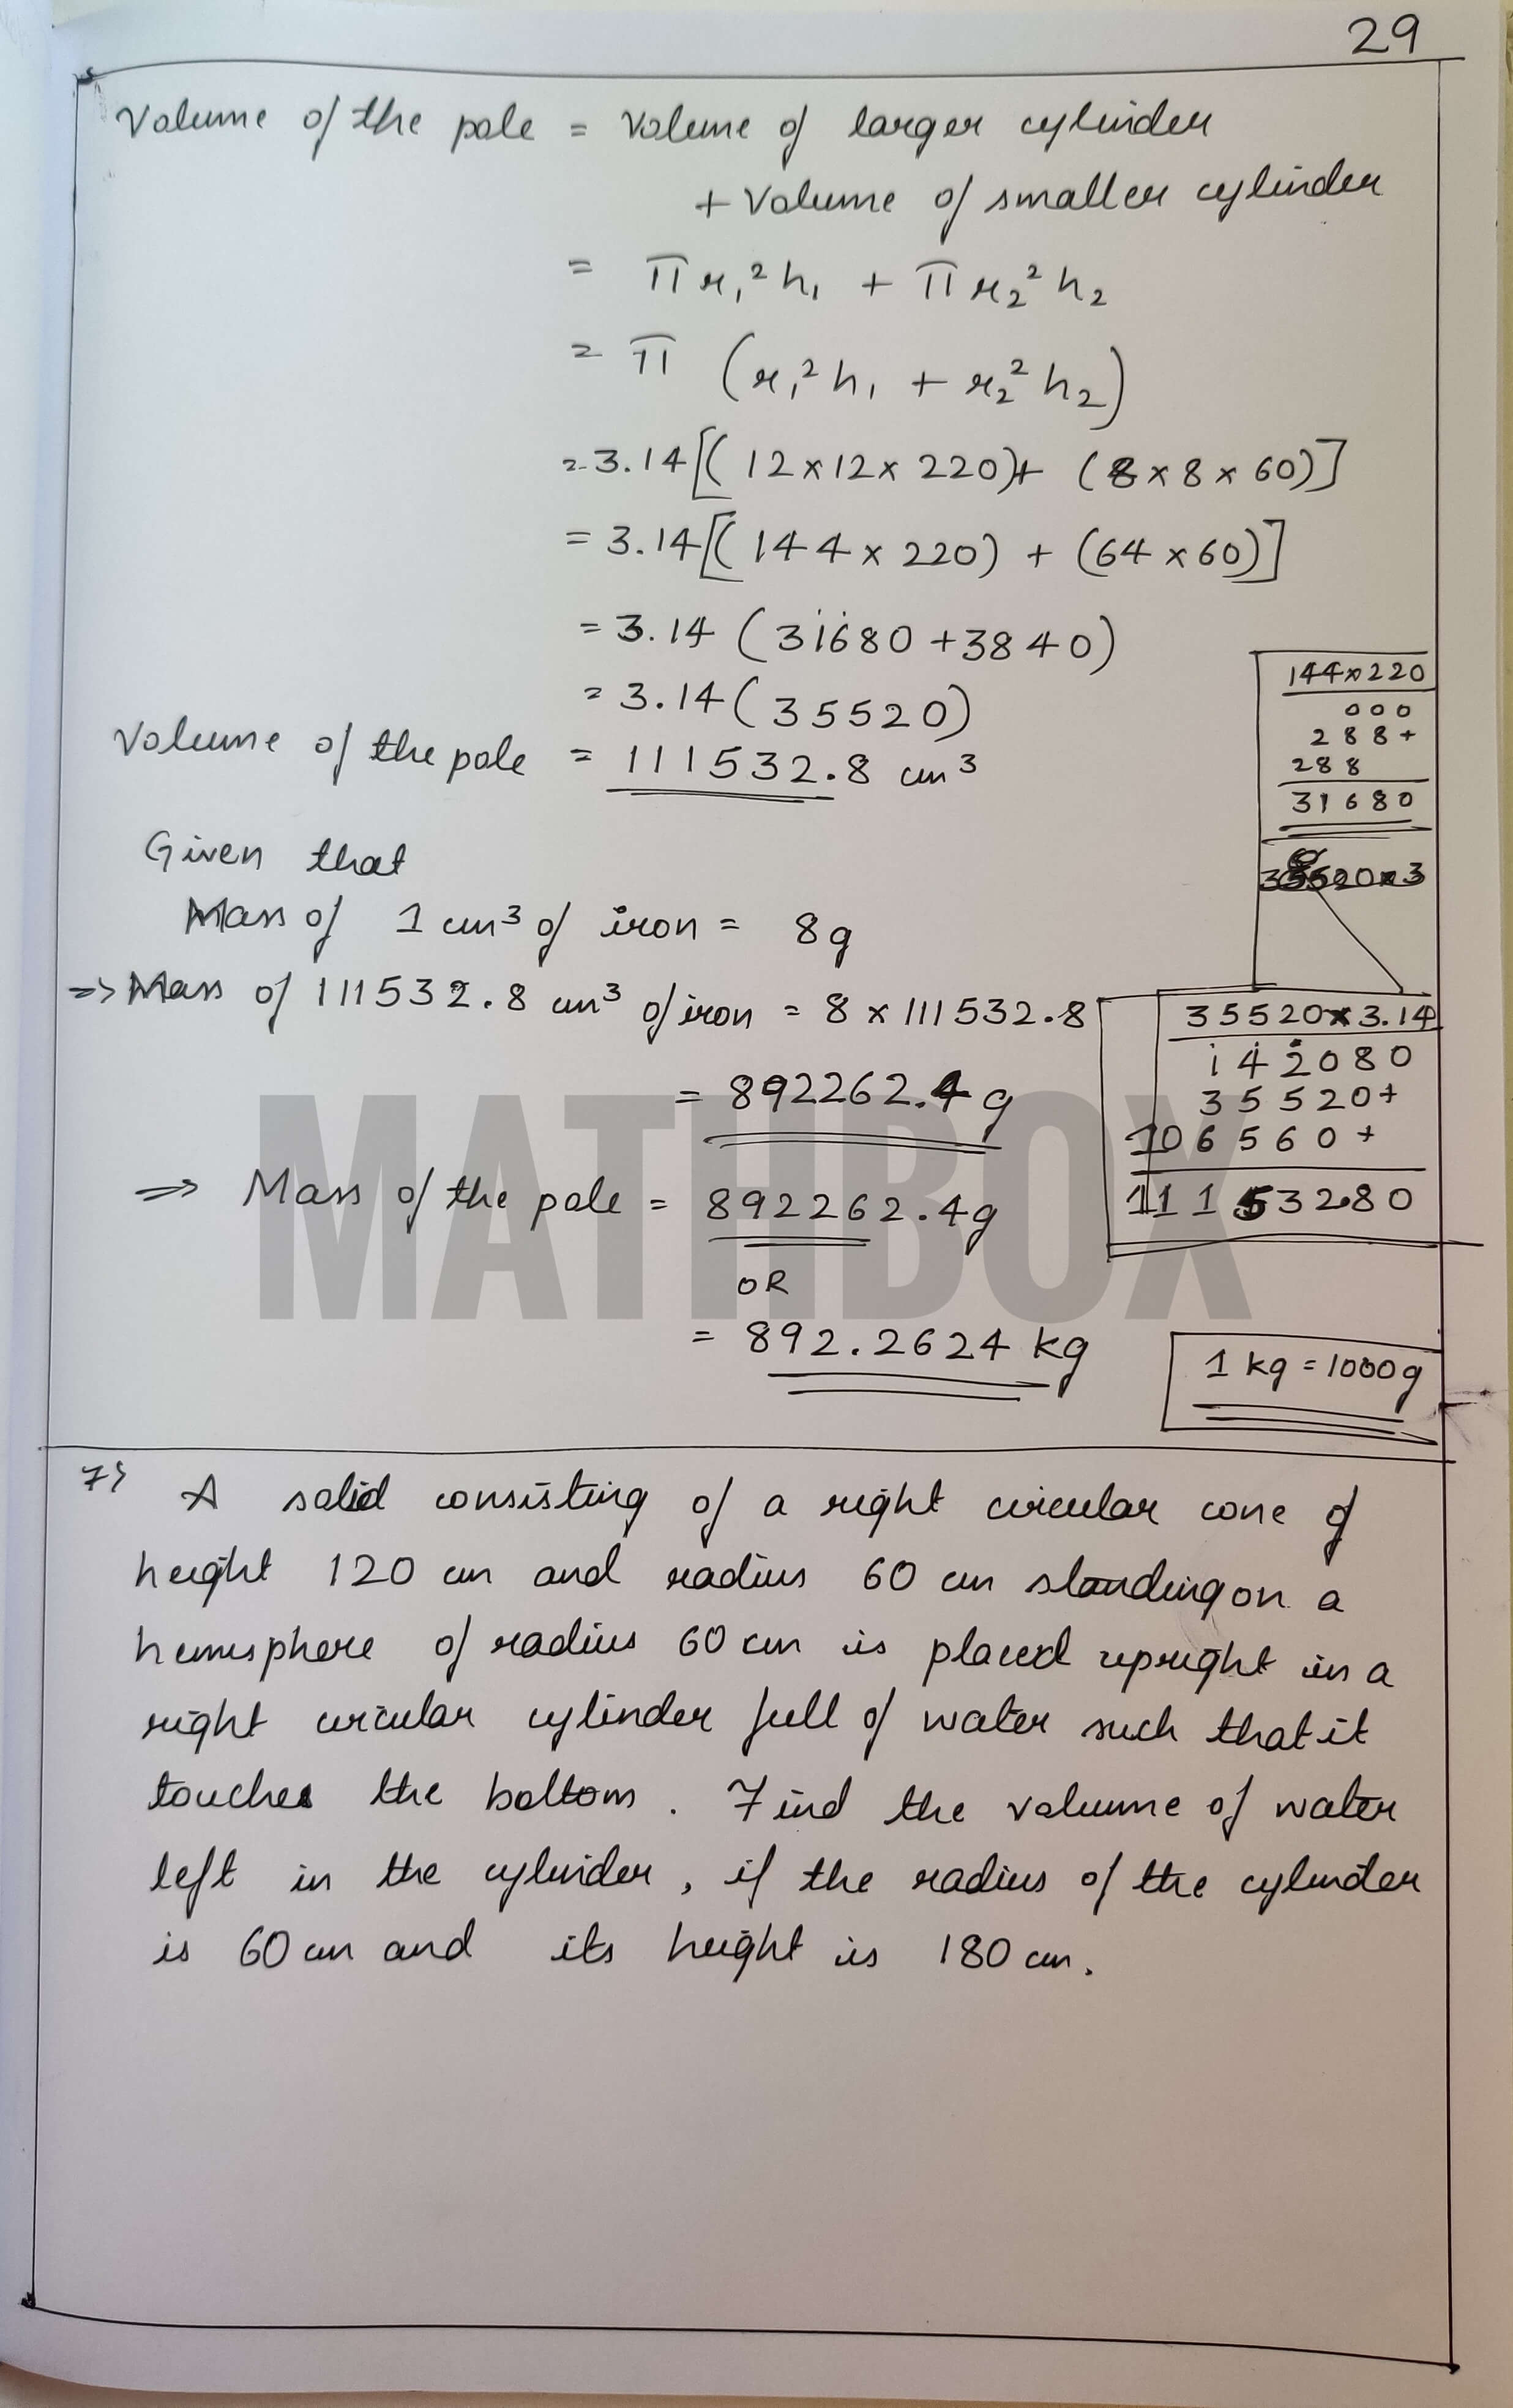 29
Volume of the pole = Volume of larger cylinder
+ Volume of smaller cylinder
= πr₁²h₁ + πr₂²h₂
= π (r₁²h₁ + r₂²h₂)
= 3.14[(12×12×220)+ (8×8×60)]
= 3.14[(144×220) + (64×60)]
= 3.14 (31680+3840)
= 3.14(35520)
Volume of the pole = 111532.8 cm³
144×220
000
288+
288
31680
Given that
Mass of 1 cm³ of iron = 8g
=> Mass of 111532.8 cm³ of iron = 8×111532.8
= 892262.4 g
35520×3.14
142080
35520+
106560+
111532.80
=> Mass of the pole = 892262.4g
OR
= 892.2624 kg
1 kg = 1000g
MATHBOX
7) A solid consisting of a right circular cone of
height 120 cm and radius 60 cm standing on a
hemisphere of radius 60 cm is placed upright in a
right circular cylinder full of water such that it
touches the bottom. Find the volume of water
left in the cylinder, if the radius of the cylinder
is 60 cm and its height is 180 cm.